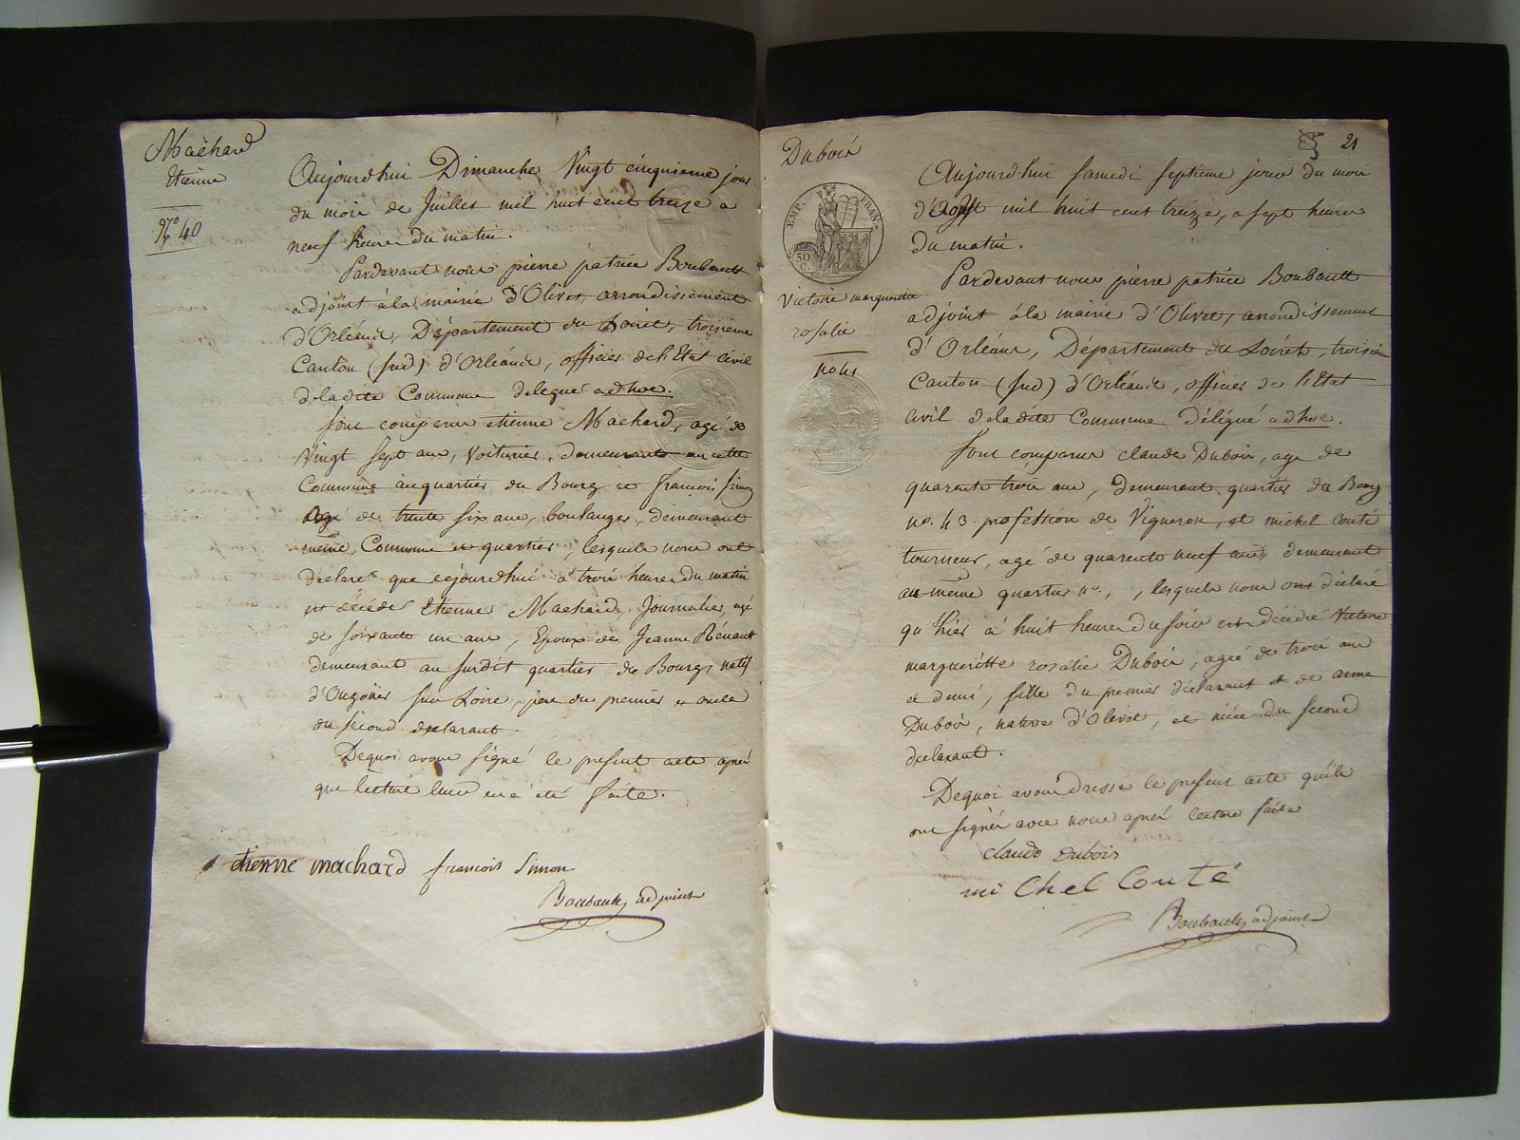 Machard
Etienne
No 40
Aujourd'hui Dimanche Vingt cinquieme jour
du mois de Juillet mil huit cent treize a
neuf heures du matin.
Pardevant nous pierre patrice Boubault
adjoint à la mairie d'Olivet, arrondissement
d'Orléans, Département du Loiret, troisieme
Canton (sud) d'Orléans, officier de l'Etat civil
de ladite Commune delegué ad hoc.
sont comparus etienne Machard, agé de
Vingt sept ans, Voiturier, demeurant en cette
Commune au quartier du Bourg et françois simon
agé de trente six ans, boulanger, demeurant
même Commune et quartier, lesquels nous ont
declaré que cejourd'hui à trois heures du matin
est décédé Etienne Machard, Journalier, agé
de soixante un ans, Epoux de Jeanne Rénard
demeurant au susdit quartier du Bourg, natif
d'Ouzouer sur Loire, pere du premier et oncle
du second declarant.
Dequoi avons signé le present acte après
que lecture leur en a été faite.
etienne machard françois Simon
Boubault, adjoint
21
Dubois
EMP. FRAN.
50
C.
Victoire margueritte
rosalie
no 41
Aujourd'hui samedi septieme jour du mois
d'Aoust mil huit cent treize, a sept heures
du matin.
Pardevant nous pierre patrice Boubault
adjoint à la mairie d'Olivet, arrondissement
d'Orléans, Département du Loiret, troisieme
Canton (sud) d'Orléans, officier de l'Etat
civil de ladite Commune délégué ad hoc.
Sont comparus claude Dubois, agé de
quarente trois ans, demeurant quartier du Bourg
no. 43 profession de Vigneron, et michel conté
tourneur, agé de quarente neuf ans demeurant
au même quartier no. , lesquels nous ont déclaré
qu'hier à huit heures du soir est décédé Victoire
margueritte rosalie Dubois, agée de trois ans
et demi, fille du premier déclarant et de anne
Dubois, native d'Olivet, et niéce du second
declarant.
Dequoi avons dressé le present acte qu'ils
ont signés avec nous après lecture faite
claude dubois
mi Chel Conté
Boubault, adjoint